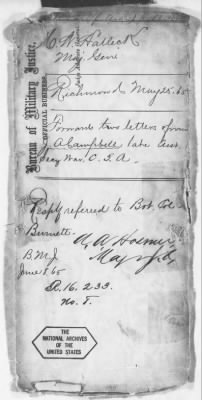 H. W. Halleck
Maj. Genl.
Bureau of Military Justice,
OFFICIAL BUSINESS.
Richmond May 65
Forwards two letters from
J A Campbell late Asst.
Secy War. C. S. A.
Respy referred to Bvt Col
Burnett.
Maj
B. M. J.
June 8, 65
R. 16. 2.33.
No. 8.
THE
NATIONAL ARCHIVES
OF THE
UNITED STATES